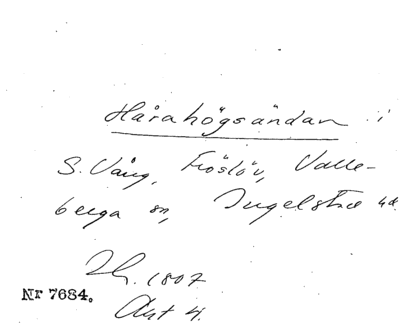 Hårahögsändan i
S. Vång, Fröslöv, Valle-
berga sn, Ingelstad hd.
1807
Nr 7684.
Akt 4.